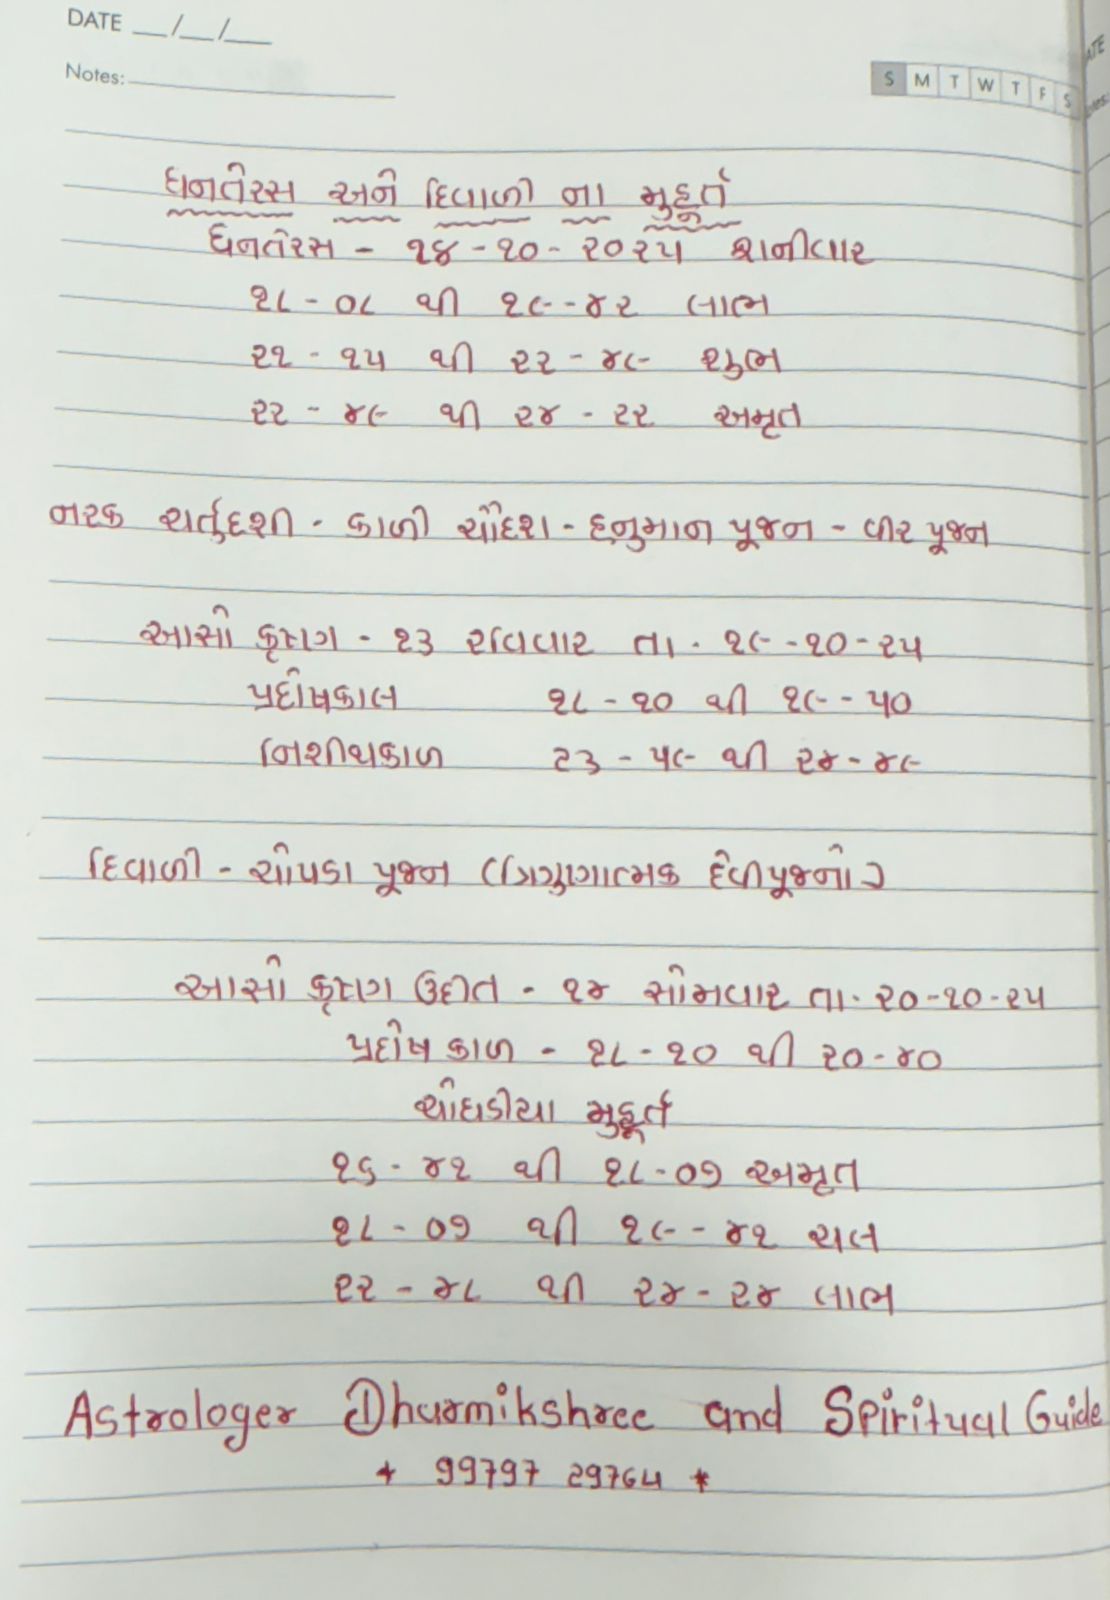 DATE __/__/__
Notes:
S M T W T F S
ધનતેરસ અને દિવાળી ના મુહૂર્ત
ધનતેરસ - ૧૪-૧૦-૨૦૨૫ શનીવાર
૧૮-૦૮ થી ૧૯-૪૨ લાભ
૨૧-૧૫ થી ૨૨-૪૯ શુભ
૨૨-૪૯ થી ૨૪-૨૨ અમૃત
નરક ચર્તુદશી - કાળી ચૌદશ - હનુમાન પૂજન - વીર પૂજન
આસો કૃષ્ણ - ૧૩ રવિવાર તા. ૧૯-૧૦-૨૫
પ્રદોષકાલ ૧૮-૧૦ થી ૧૯-૫૦
નિશીથકાળ ૨૩-૫૯ થી ૨૪-૪૯
દિવાળી - ચોપડા પૂજન (ત્રિગુણાત્મક દેવીપૂજનો)
આસો કૃષ્ણ ઉદીત - ૧૪ સોમવાર તા. ૨૦-૧૦-૨૫
પ્રદોષ કાળ - ૧૮-૧૦ થી ૨૦-૪૦
ચોઘડીયા મુહૂર્ત
૧૬-૪૧ થી ૧૮-૦૭ અમૃત
૧૮-૦૭ થી ૧૯-૪૧ ચલ
૨૨-૪૮ થી ૨૪-૨૪ લાભ
Astrologer Dharmikshree and Spiritual Guide
* 99797 29764 *